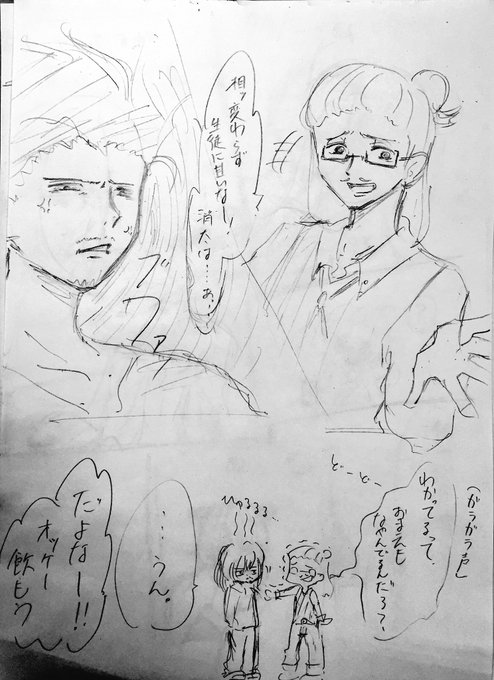 相っ変わらず
生徒に甘いなー!
消太は…あ、
ブワァァ
(ガラガラ声)
どーどー
わかってるって、
おまえも
なやんでるんだろ?
ひゅるるる…
…うん。
だよなー!!
オッケー
飲もう